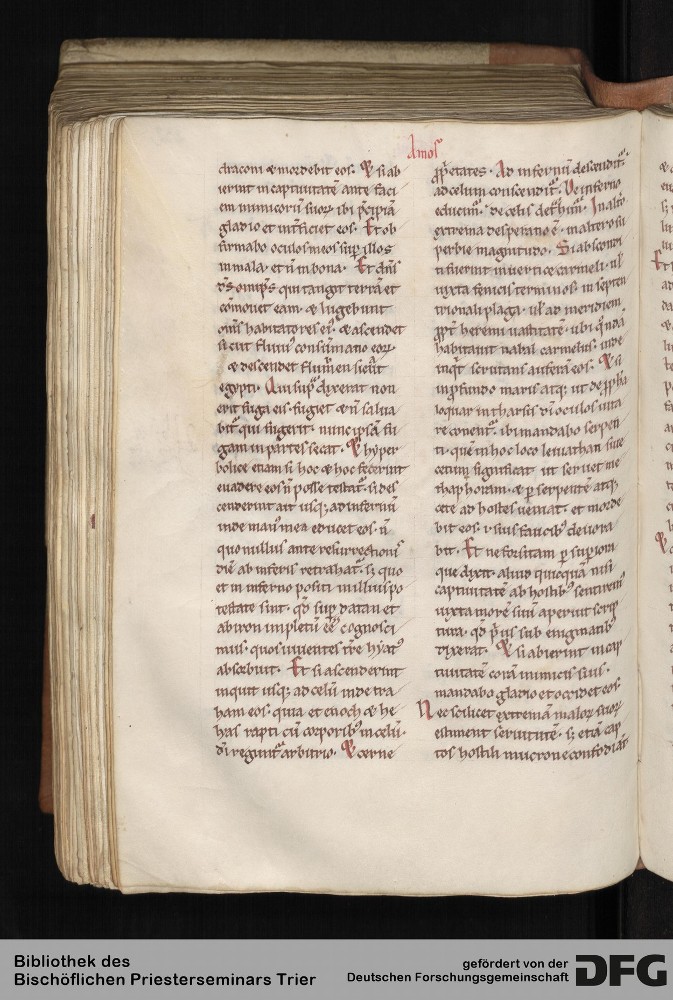 Amos
draconi & mordebit eos. Et si ab
ierint in captiuitatē ante faci
em inimicorū suoꝝ ibi p̄cipiā
gladio et int̄ficiet eos. Et ob
firmabo oculos meos sup illos
in mala, et n̄ in bona. Et dn̄s
ds̄ omīps qui tangit terrā et
cōmouet eam. & lugebunt
om̄s habitatores eiꝰ. & ascendet
sicut fluuiꝰ consūmatio eoꝝ
& descendet flum̄en sicut
egypti. Qui sup dixerat non
erit fuga eis. fugiet & n̄ salua
bit̄ qui fugerit. nunc ipsā fu
gam in partes secat. Et hyper
bolice etiam si hoc & hoc fecerint
euadere eos n̄ posse testat̄. si des
cenderint ait usq; ad infernū
inde manꝰ mea educet eos. n̄
quo nullus ante resurrectionis
diē ab inferis retrahat̄. sꝫ quo
et in inferno positi in illius po
testate sint. qd̄ sup datan et
abiron impletū eē cognosci
mus. quos uiuentes tr̄e hyatꝰ
absorbuit. Et si ascenderint
inquit usq; ad celū inde tra
ham eos. quia et enoch & he
lias rapti cū corporibꝰ in celū.
di regunt̄ arbitrio. Et cerne
pp̄etates. Ad infernū descendit̄.
ad celum conscendit̄. De inferno
educim̄. de celis det̄him̄. In alt̄o
extrema desperatio ē. in altero su
perbie magnitudo. Si absconditi
fuerint in uertice carmeli. ul̄
iuxta fenicis terminos. in septen
trionali plaga. ul̄ ad meridiem
ppt̄ heremi uastitatē. ubi q̄ndā
habitauit nabal carmelus. inde
inq̄t scrutans auferā eos. Et si
in pfundo maris atq; ut de pp̄ha
loquar in tharsis di oculos uita
re conent̄. ibi mandabo serpen
ti. quē in hoc loco leuiathan siue
cetum significat. ut seruet me
thaphoram. & p serpentē atq;
cete ad hostes ueniat. et morde
bit eos. & suis faucibꝰ deuora
bit. Et ne forsitam p supiora
que dixit. aliud quicquā nisi
captiuitatē ab hostibꝰ sentirem̄
iuxta morē suū aperuit scrip
tura. qd̄ p̄us sub enigmatibꝰ
dixerat. Et si abierint in cap
tiuitatē corā inimicis suis.
mandabo gladio et occidet eos.
Nec scilicet extremam maloꝝ suoꝝ
estiment seruitutē. sꝫ etiā cap
tos hostili mucrone confodiāt
Bibliothek des
Bischöflichen Priesterseminars Trier
gefördert von der
Deutschen Forschungsgemeinschaft
DFG